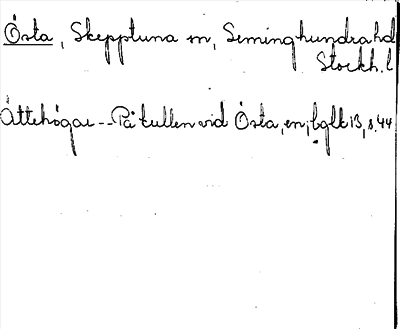 Östa, Skepptuna sn, Seminghundra hd
Stockh. l
Ättehögar -- På kullen vid Östa, en; bglt 13, s. 44